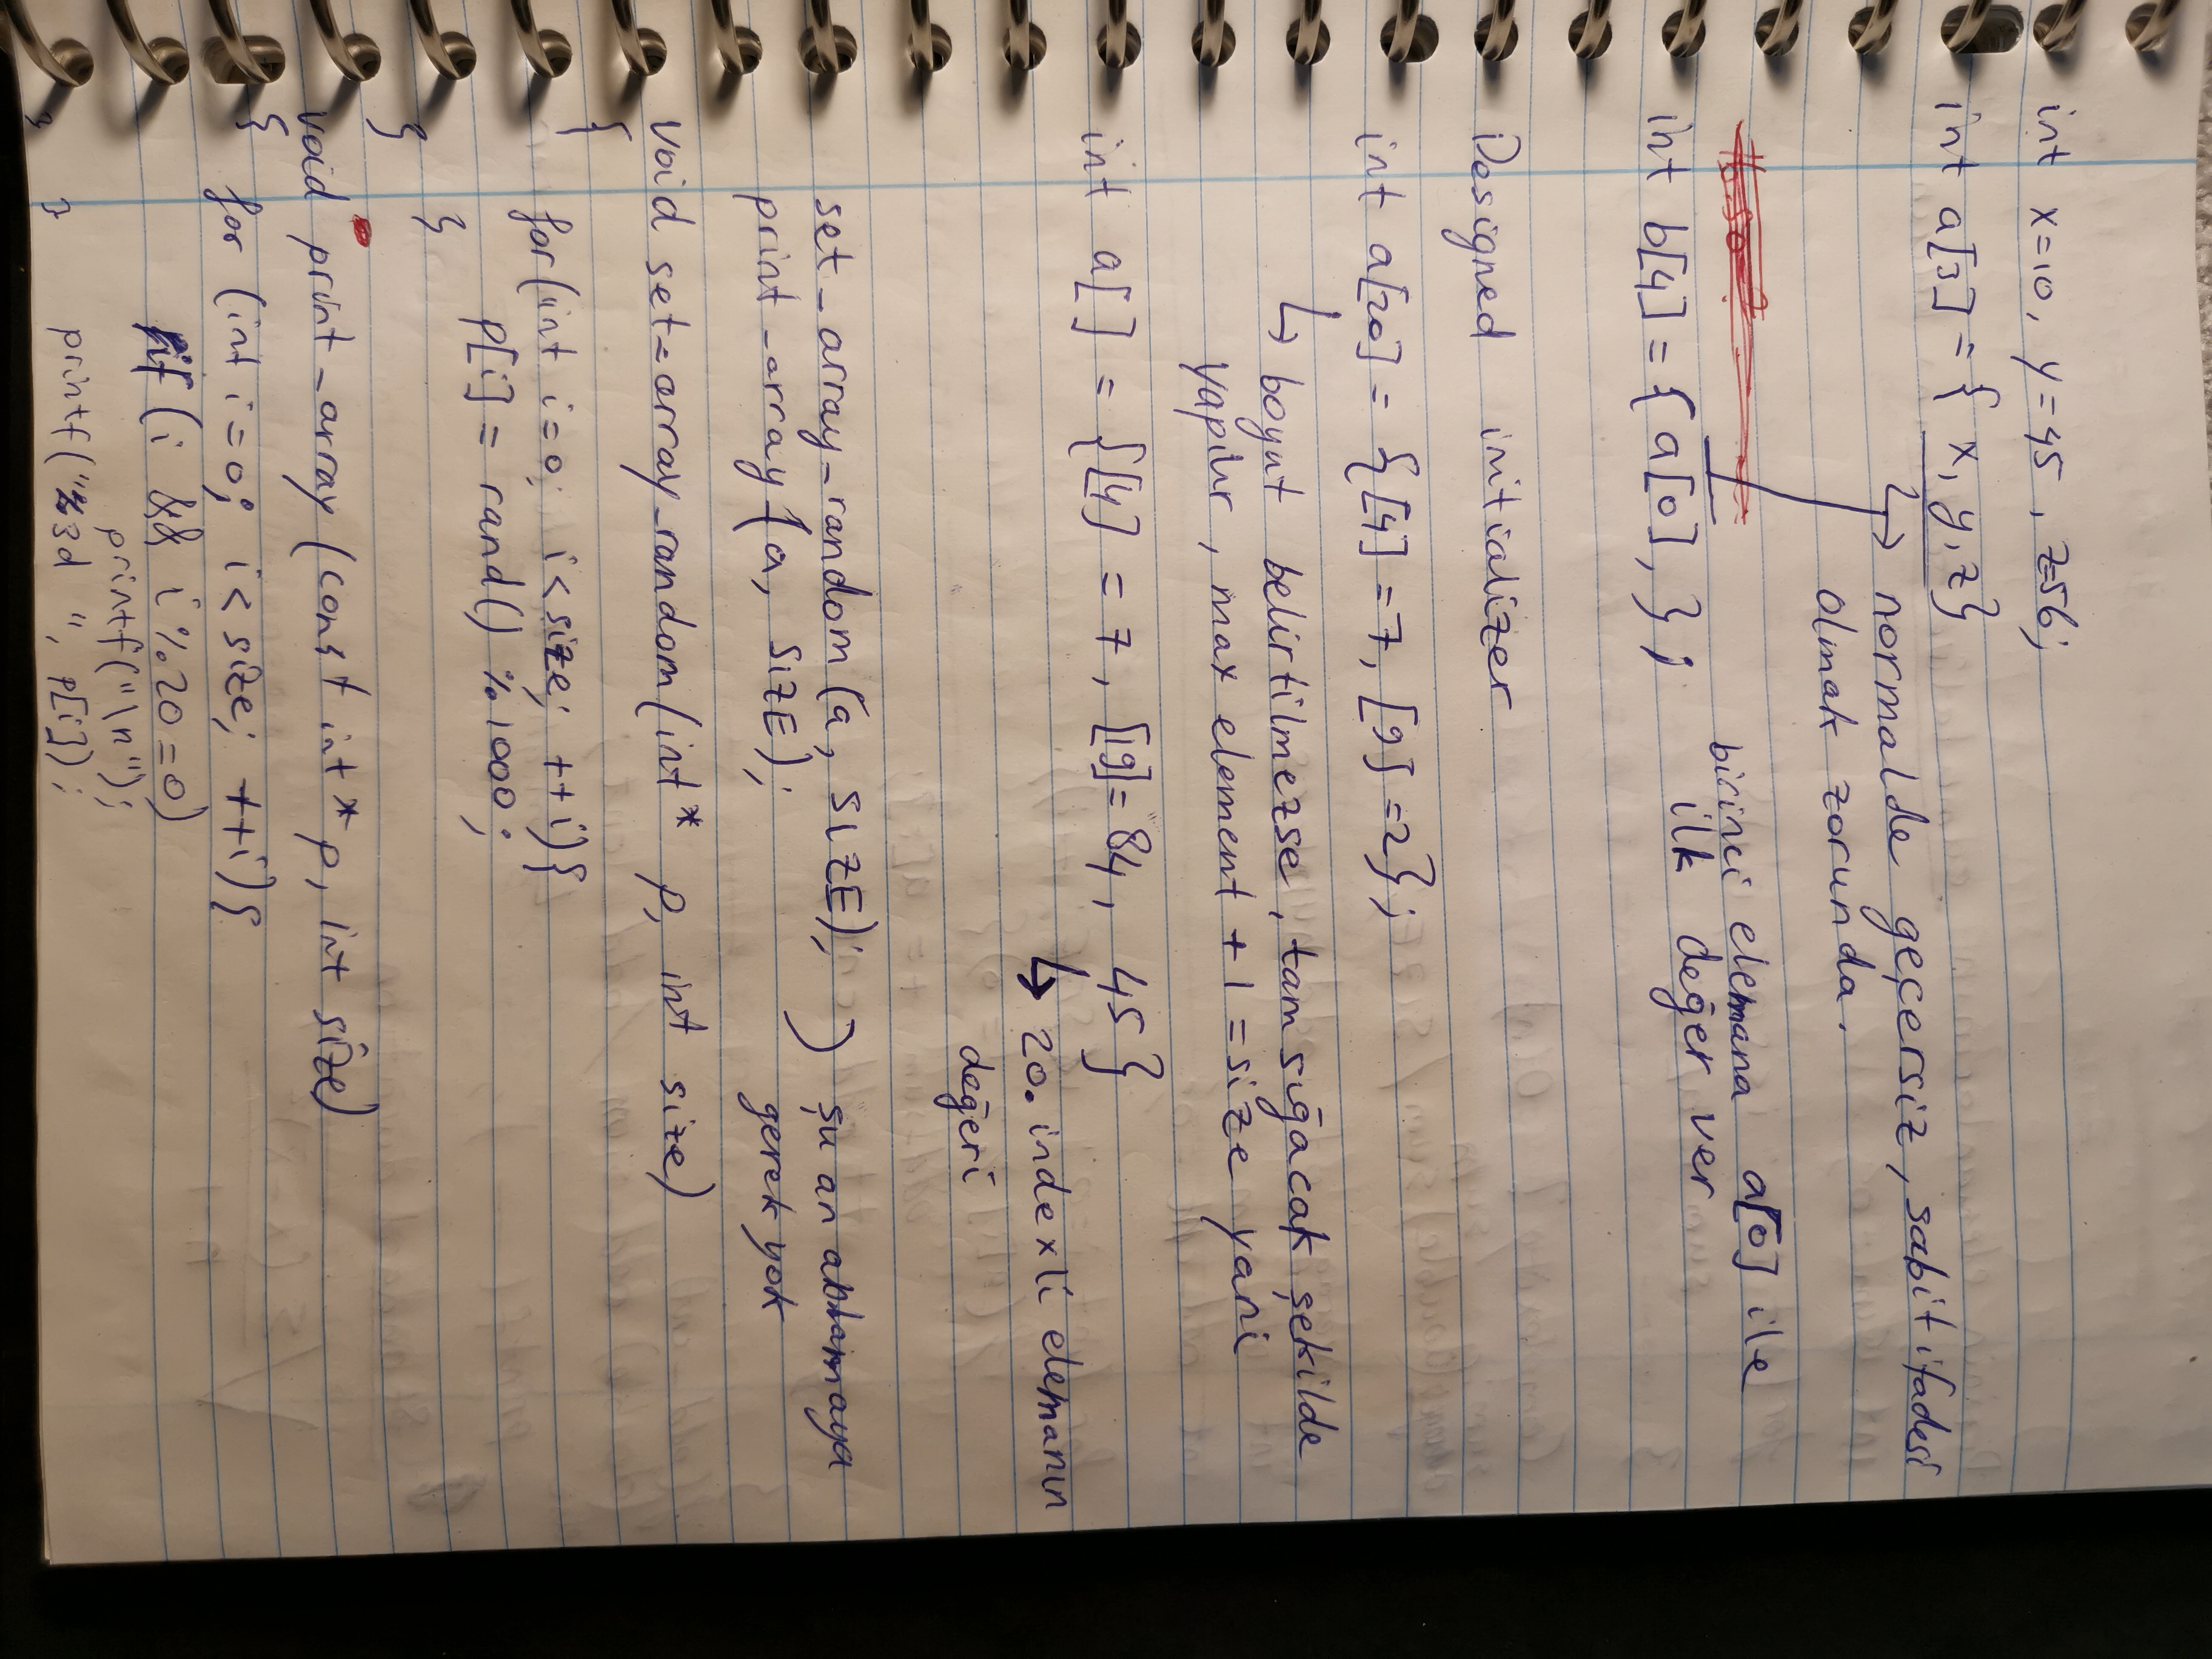 int x=10, y=45, z=56;
int a[3] = { x, y, z}
normalde geçersiz, sabit ifadesi
olmak zorunda.
birinci elemana a[0] ile
ilk değer ver
int b[4] = {a[0], };
Designed initializer
int a[20] = {[4] = 7, [9] = 2};
boyut belirtilmezse, tam sığacak şekilde
yapılır, max element + 1 = size yani
int a[] = {[4] = 7, [19] = 84, 45}
20. indexli elemanın
değeri
set_array_random(a, SIZE);
print_array(a, SIZE);
şu an anlamaya
gerek yok
void set_array_random(int* p, int size)
{
for(int i=0; i<size; ++i){
p[i] = rand() %1000;
}
}
void print_array (const int* p, int size)
{
for (int i=0; i<size; ++i){
if (i && i%20=0)
printf("\n");
printf("%3d ", p[i]);
}
}